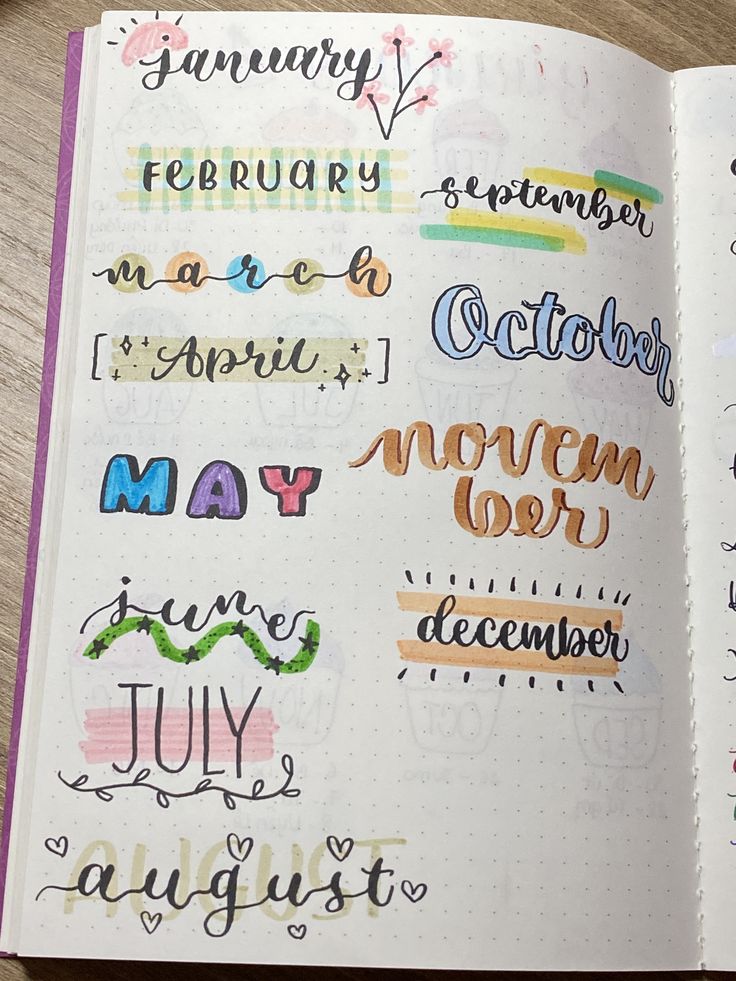 january
FEBRUARY
march
April
MAY
june
JULY
august
AUGUST
september
October
novem
ber
december